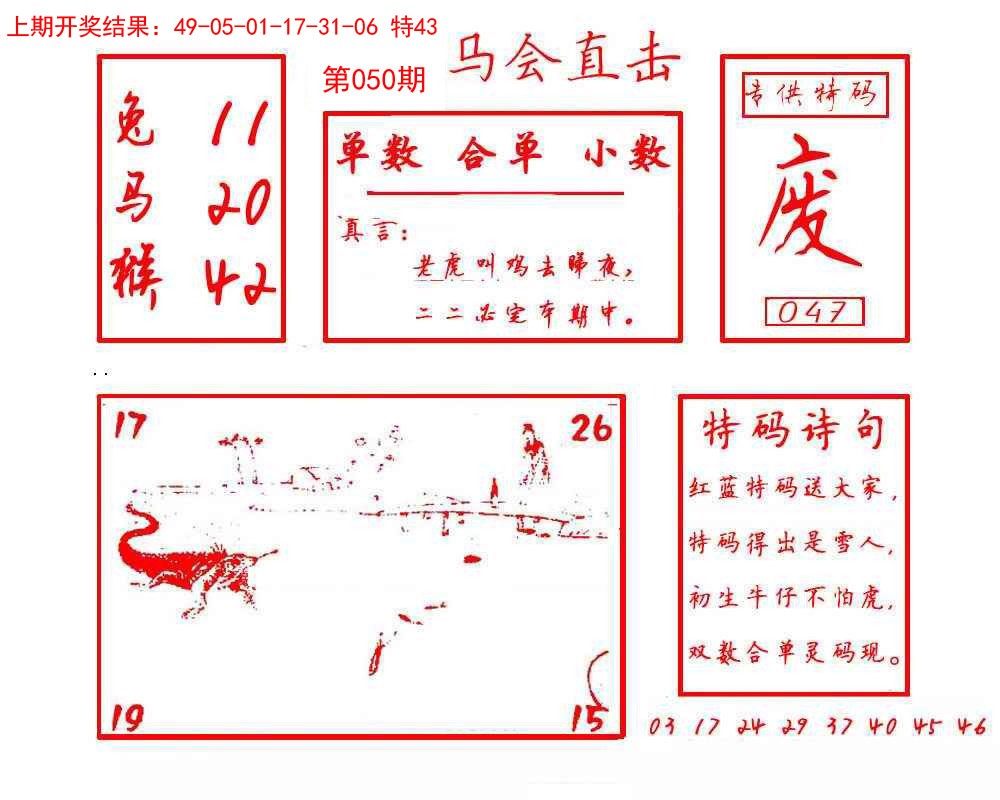 上期开奖结果：49-05-01-17-31-06 特43
马会直击
第050期
兔 11
马 20
猴 42
单数 合单 小数
真言：
老虎叫鸡去睇夜，
二二必定在期中。
专供特码
废
047
17
26
19
15
特码诗句
红蓝特码送大家，
特码得出是雪人，
初生牛仔不怕虎，
双数合单灵码现。
03 17 24 29 37 40 45 46